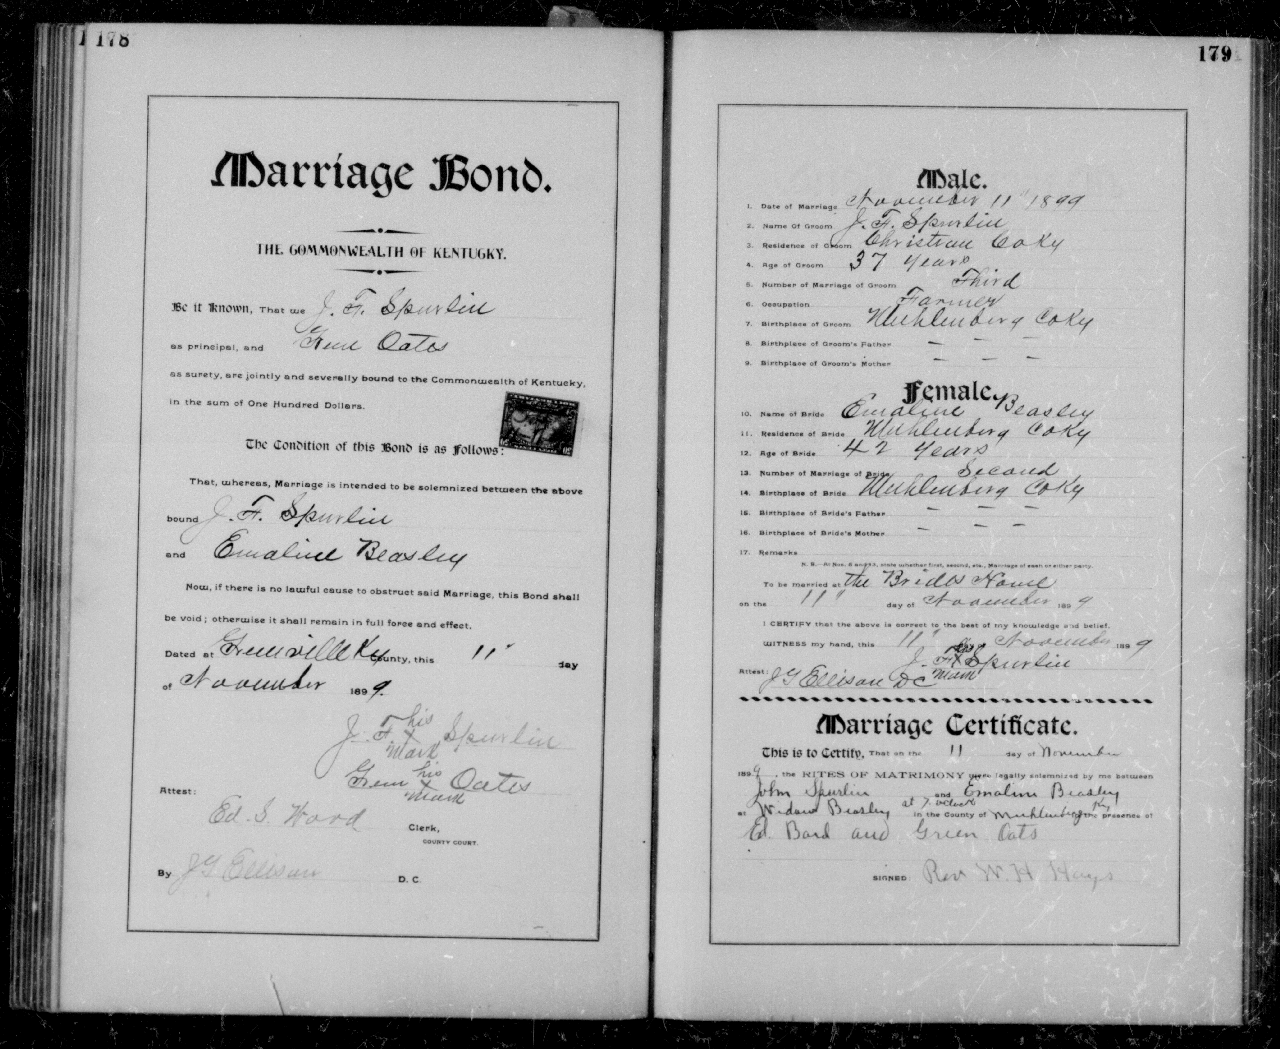 178
Marriage Bond.
THE COMMONWEALTH OF KENTUCKY.
Be it Known, That we J. F. Spurlin
as principal, and Green Oates
as surety, are jointly and severally bound to the Commonwealth of Kentucky,
in the sum of One Hundred Dollars.
The Condition of this Bond is as Follows:
That, whereas, Marriage is intended to be solemnized between the above
bound J. F. Spurlin
and Emaline Beasley
Now, if there is no lawful cause to obstruct said Marriage, this Bond shall
be void; otherwise it shall remain in full force and effect.
Dated at Greenville Ky County, this 11" day
of November 1899.
J. F. his x mark Spurlin
Green his x mark Oates
Attest:
Ed. S. Word
Clerk,
COUNTY COURT.
By J G Ellison D. C.
179
Male.
1. Date of Marriage November 11" 1899
2. Name Of Groom J. F. Spurlin
3. Residence of Groom Christian Co Ky
4. Age of Groom 37 Years
5. Number of Marriage of Groom Third
6. Occupation Farmer
7. Birthplace of Groom Muhlenberg Co Ky
8. Birthplace of Groom's Father — — —
9. Birthplace of Groom's Mother — — —
Female.
10. Name of Bride Emaline Beasley
11. Residence of Bride Muhlenberg Co Ky
12. Age of Bride 42 Years
13. Number of Marriage of Bride Second
14. Birthplace of Bride Muhlenberg Co Ky
15. Birthplace of Bride's Father — — —
16. Birthplace of Bride's Mother — — —
17. Remarks
state whether first, second, etc., Marriage of each or either party.
To be married at the Brides House
on the 11" day of November 1899
I CERTIFY that the above is correct to the best of my knowledge and belief.
WITNESS my hand, this 11" day November 1899
J. F. x Spurlin
Attest: J G Ellison DC mark
Marriage Certificate.
This is to Certify, That on the 11 day of November
1899, the RITES OF MATRIMONY were legally solemnized by me between
John Spurlin and Emaline Beasley
at Widow Beasley at 7 oclock in the County of Muhlenberg Ky the presence of
Ed Bard and Green Oats
SIGNED Rev W. H. Hays